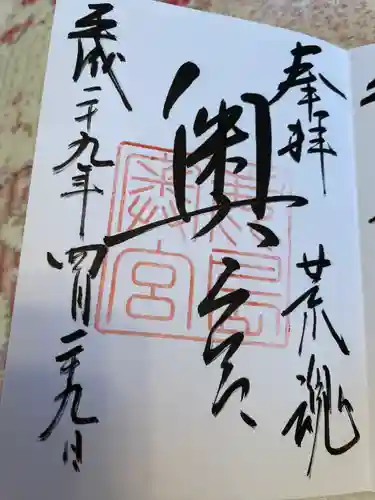 奉拝　荒魂
奥宮
平成二十九年四月二十九日
鹿島
奥宮